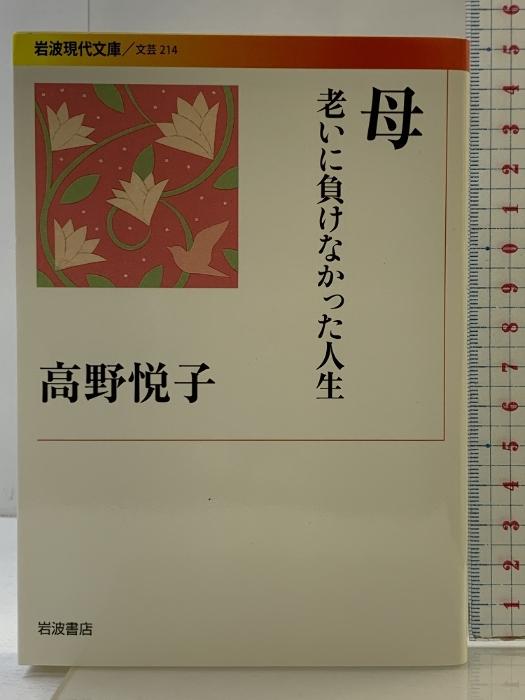 岩波現代文庫／文芸 214
母
老いに負けなかった人生
高野悦子
岩波書店
5
4
3
2
1
0
9
8
7
6
5
4
3
2
1